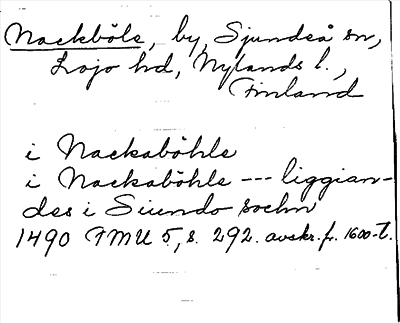 Nackböle, by, Sjundeå sn,
Lojo hd, Nylands l.,
Finland
i Nackaböhle
i Nackaböhle --- liggian-
des i Siundo sochn
1490 FMU 5, s. 292. avskr. fr. 1600-t.